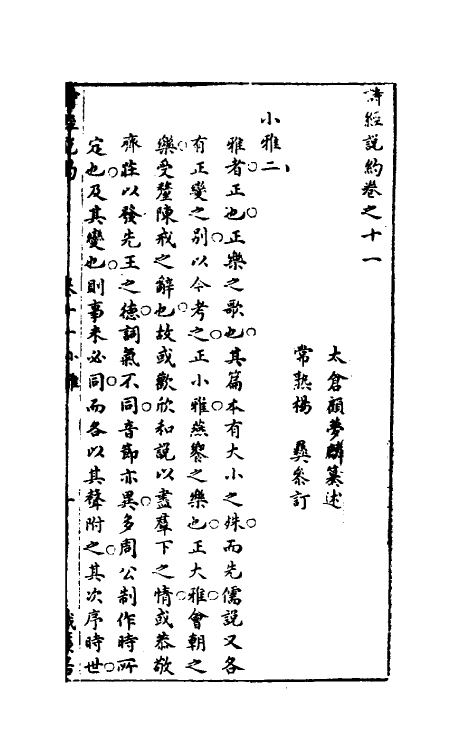 詩經説約卷之十一
太倉顧夢麟纂述
常熟楊　彝參訂
小雅二
雅者正也正樂之歌也其篇本有大小之殊而先儒説又各
有正變之别以今考之正小雅燕饗之樂也正大雅會朝之
樂受釐陳戒之辭也故或歡欣和説以盡羣下之情或恭敬
齊莊以發先王之德詞氣不同音節亦異多周公制作時所
定也及其變也則事未必同而各以其聲附之其次序時世